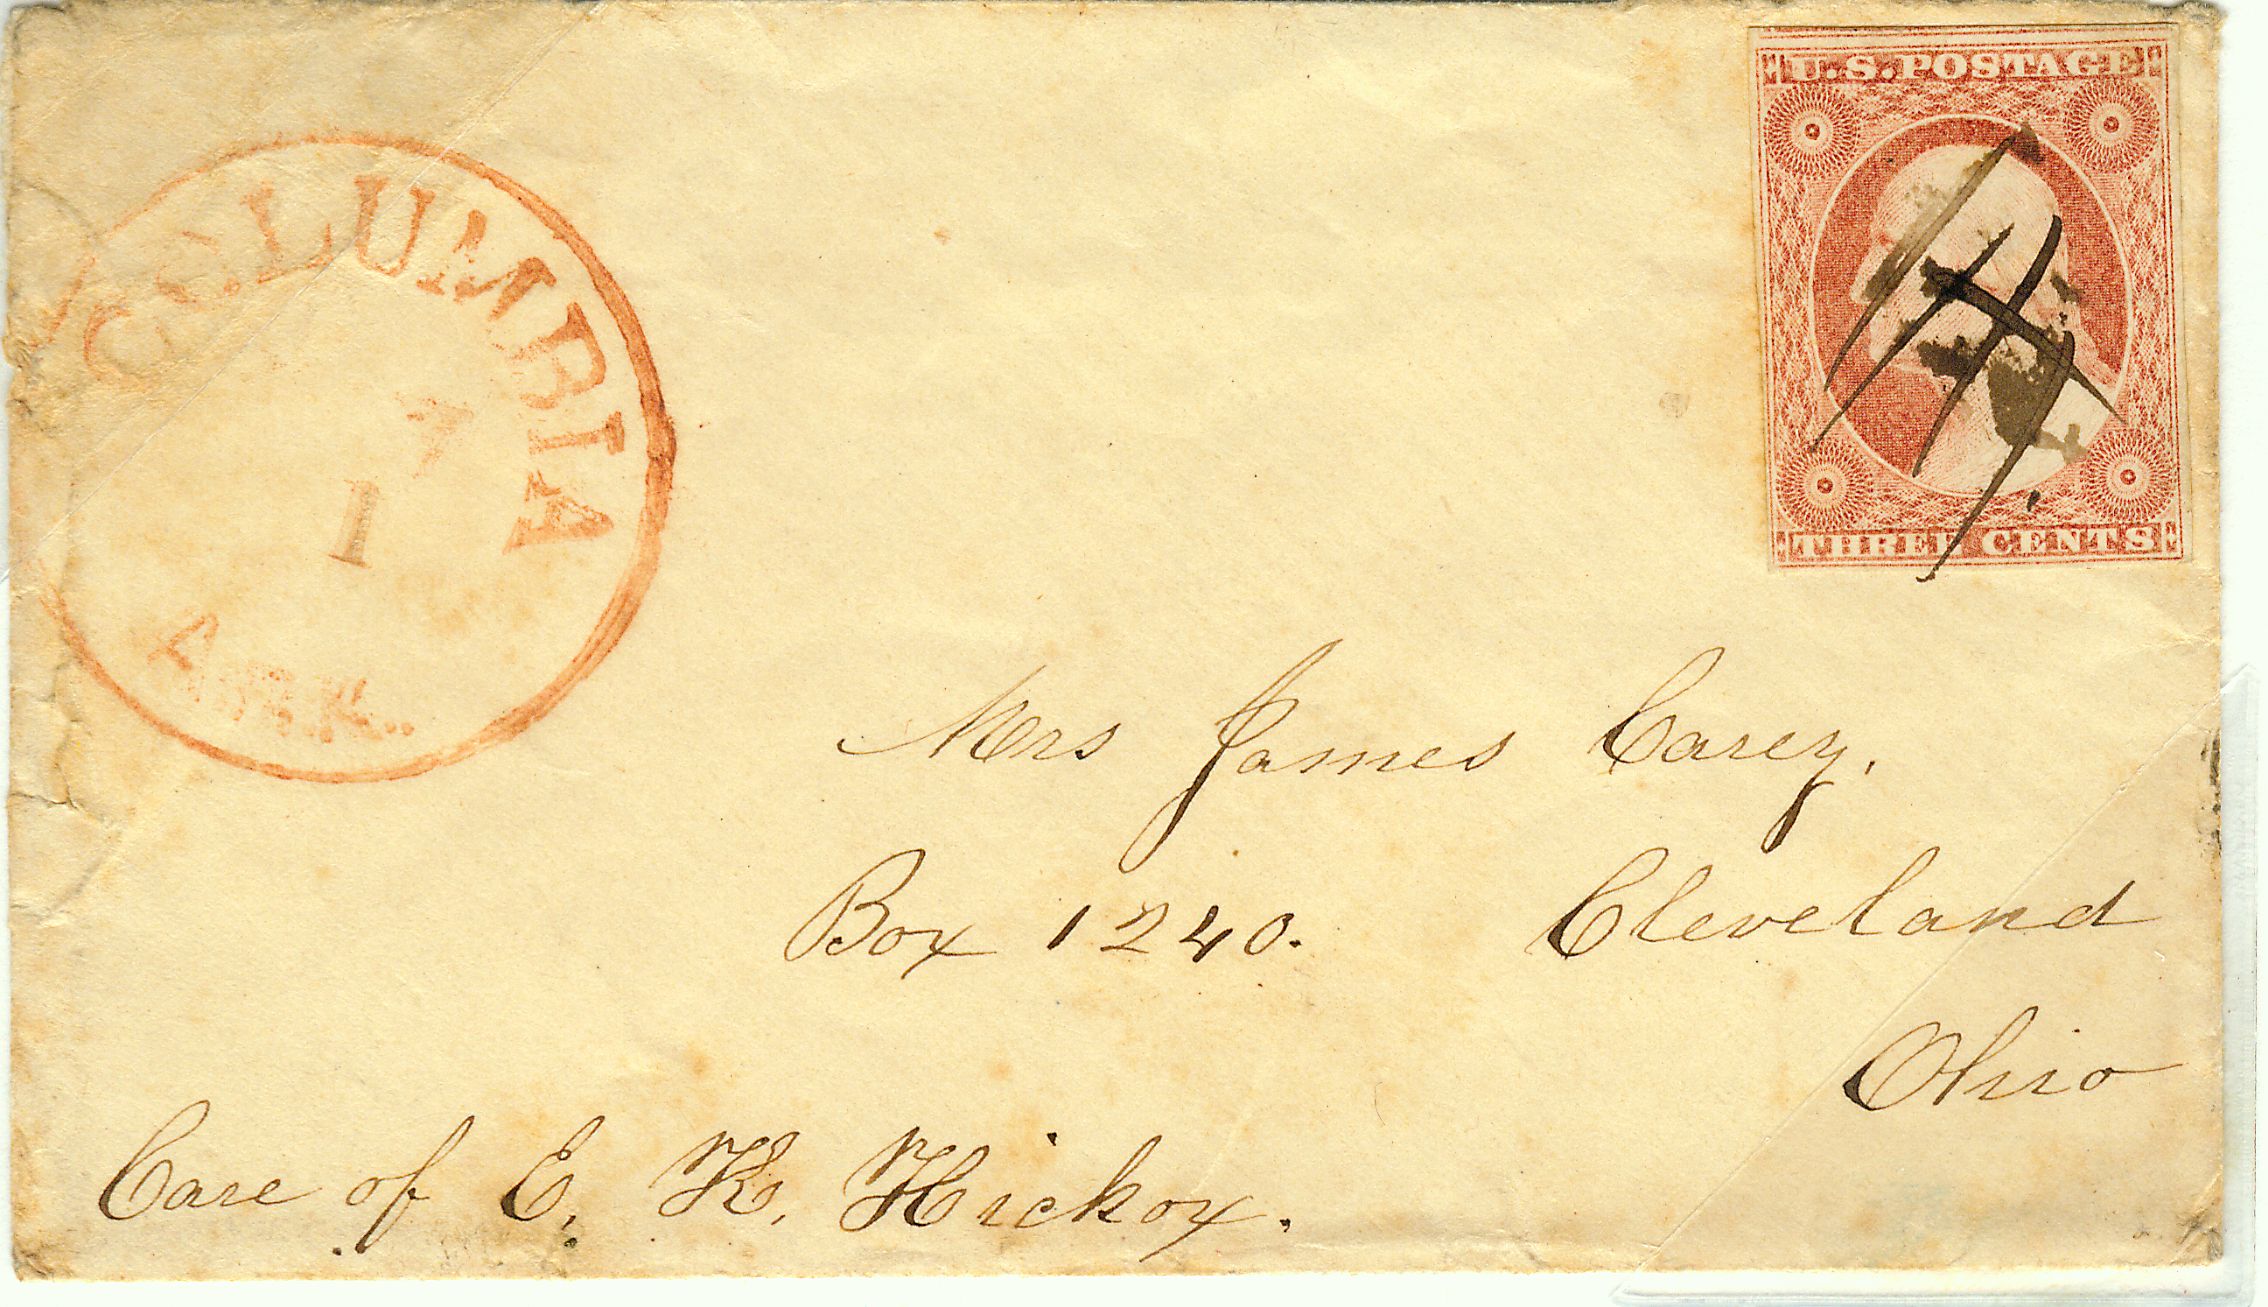 COLUMBIA
1
Ark.
U.S. POSTAGE
THREE CENTS
Mrs James Carey.
Box 1240. Cleveland
Ohio
Care of E. K. Hickox.